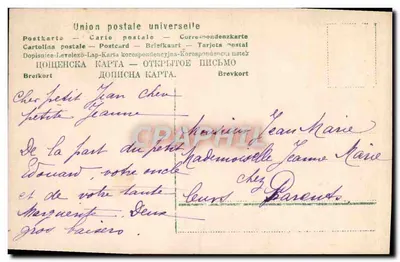 Union postale universelle
Postkarta — Carte postale — Correspondenzkarte
Cartolina postale — Postcard — Briefkaart — Tarjeta postal
Dopisnice-Levelező-Lap-Karta korespondencyjna-
ЦОЩЕНСКА КАРТА — ОТКРЫТОЕ ПИСЬМО
Brefkort ДОПИСНА КАРТА. Brevkort
Cher petit Jean cher
petite Jeanne
De la part du petit
Edouard, votre oncle
et de votre tante
Marguerite. Deux
gros baisers.
CPARAMA
Monsieur Jean Marie
Mademoiselle Jeanne Marie
chez
leurs Parents